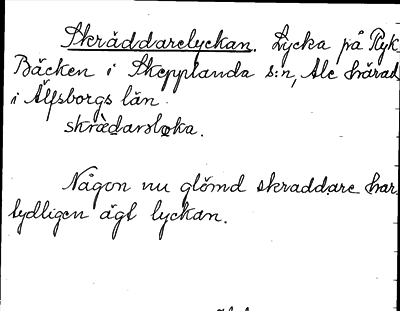 Skräddarelyckan. Lycka på Ryk
Bäcken i Skepplanda s:n, Ale härad
i Älfsborgs län.
skrèdarsloka.
Någon nu glömd skraddare har
tydligen ägt lyckan.